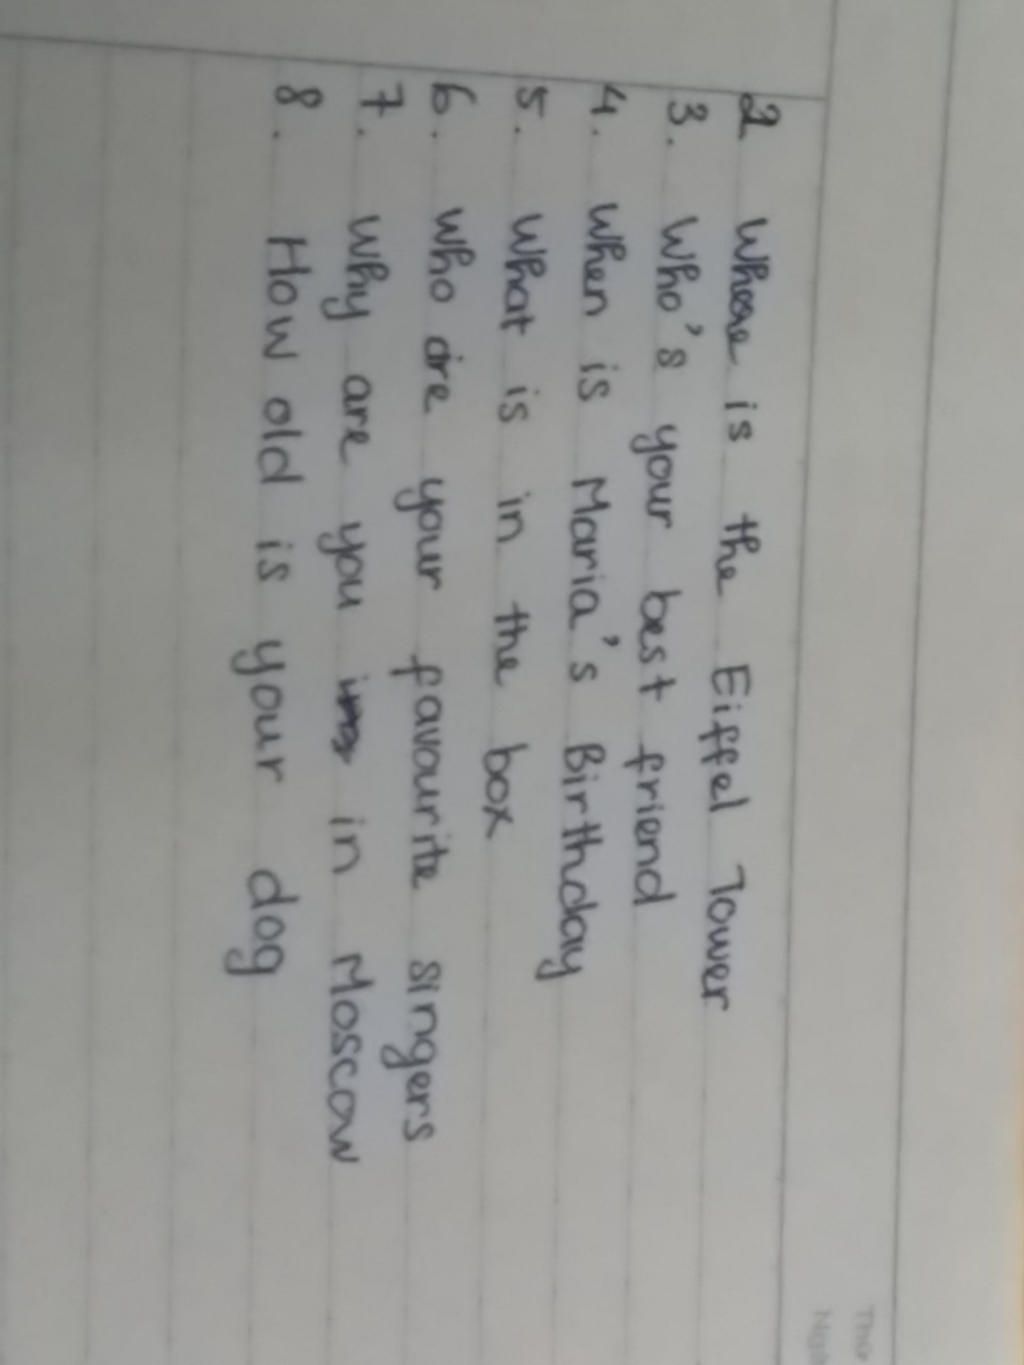 2 Where is the Eiffel Tower
3. Who's your best friend
4. When is Maria's Birthday
5. What is in the box
6. Who are your favourite singers
7. Why are you in Moscow
8. How old is your dog